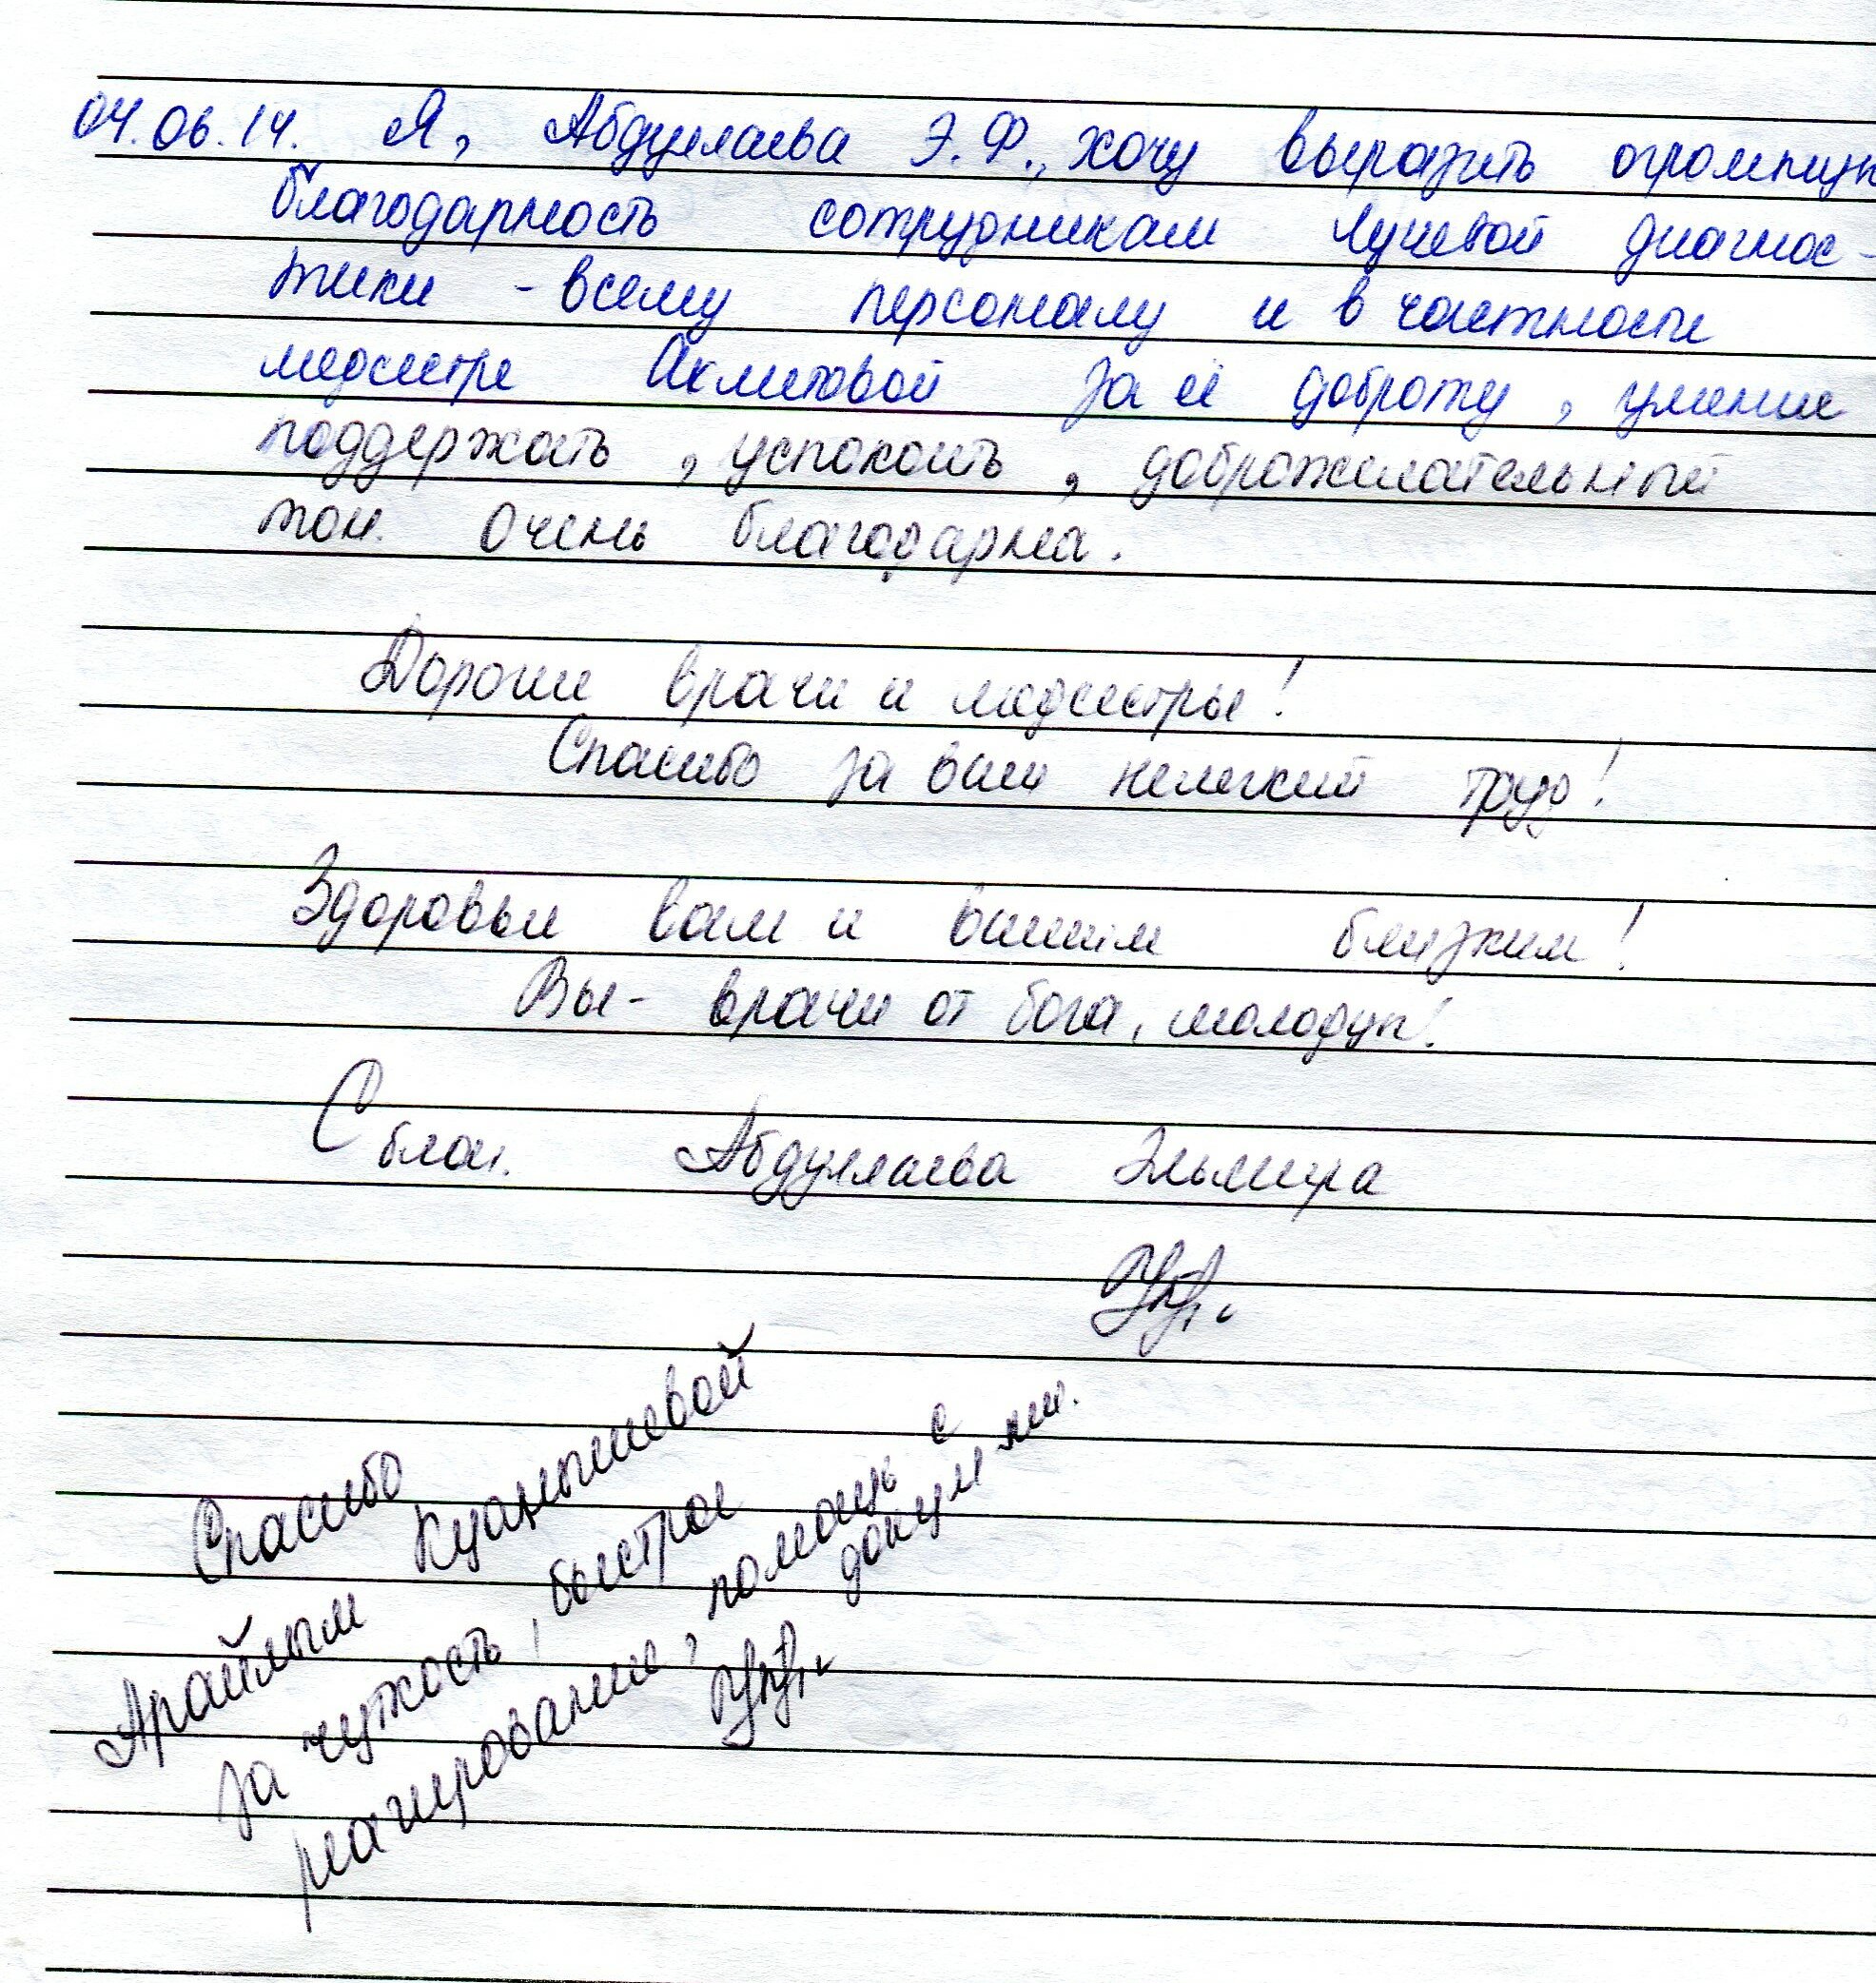 04.06.14. Я, Абдуллаева Э.Ф., хочу выразить огромную
благодарность сотрудникам лучевой диагнос-
тики - всему персоналу и в частности
медсестре Ахметовой за её доброту, умение
поддержать, успокоить, доброжелательный
тон. Очень благодарна.
Дорогие врачи и медсестры!
Спасибо за ваш нелегкий труд!
Здоровья вам и вашим близким!
Вы - врачи от бога, молодцы!
С благ. Абдуллаева Эльмира
Спасибо
Арайлым Куанышевой
за чуткость, быстрое
реагирование, помощь с
докум-ми.